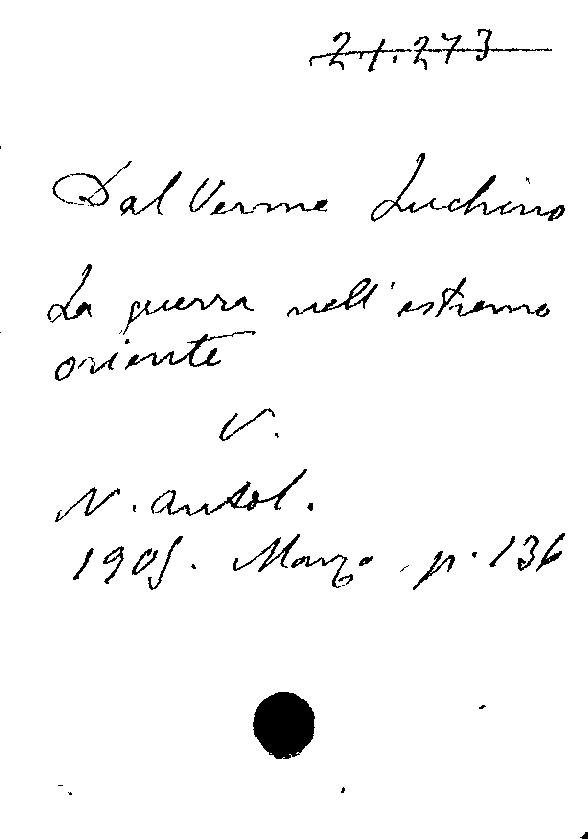 21.273
Dal Verme Luchino
La guerra nell'estremo
oriente
V.
N. Antol.
1905. Marzo. p. 136